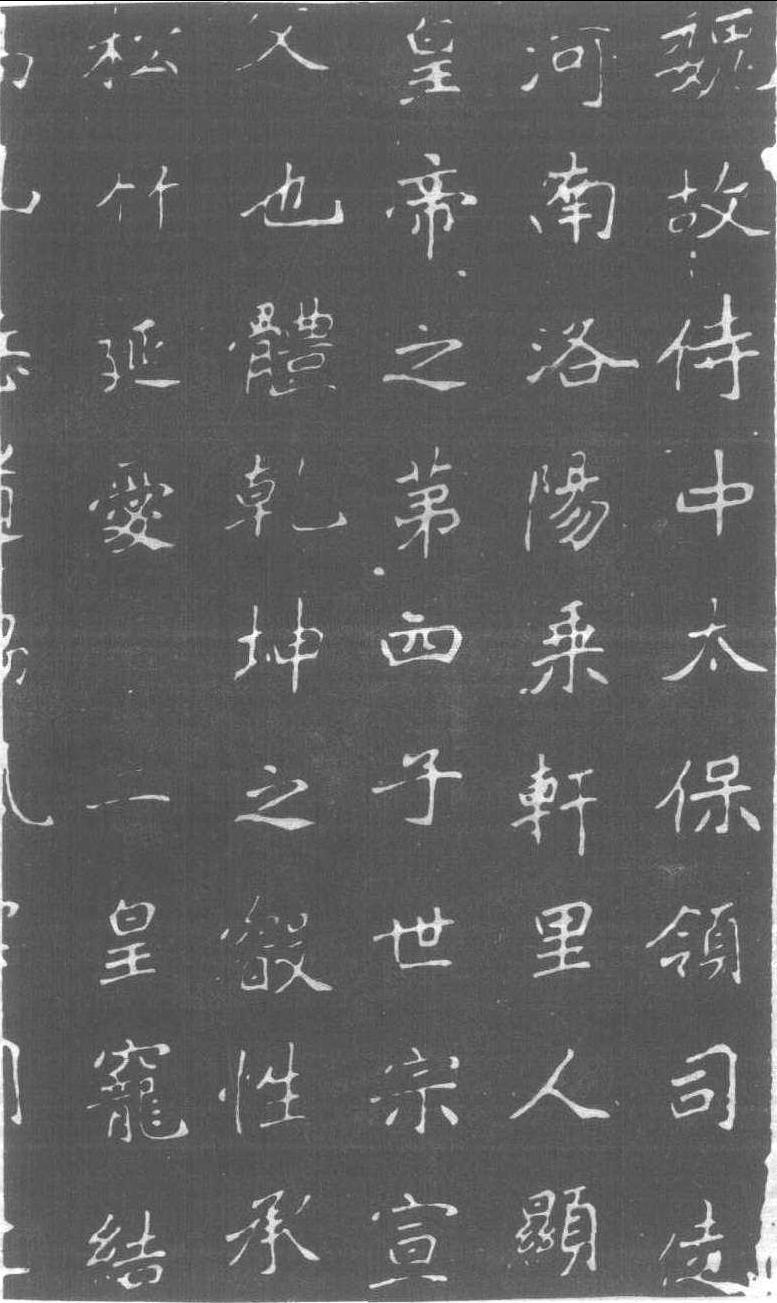 魏故侍中太保領司徒
河南洛陽乗軒里人顯
皇帝之第四子世宗宣
父也體乾坤之叡性承
松竹延愛二皇寵結